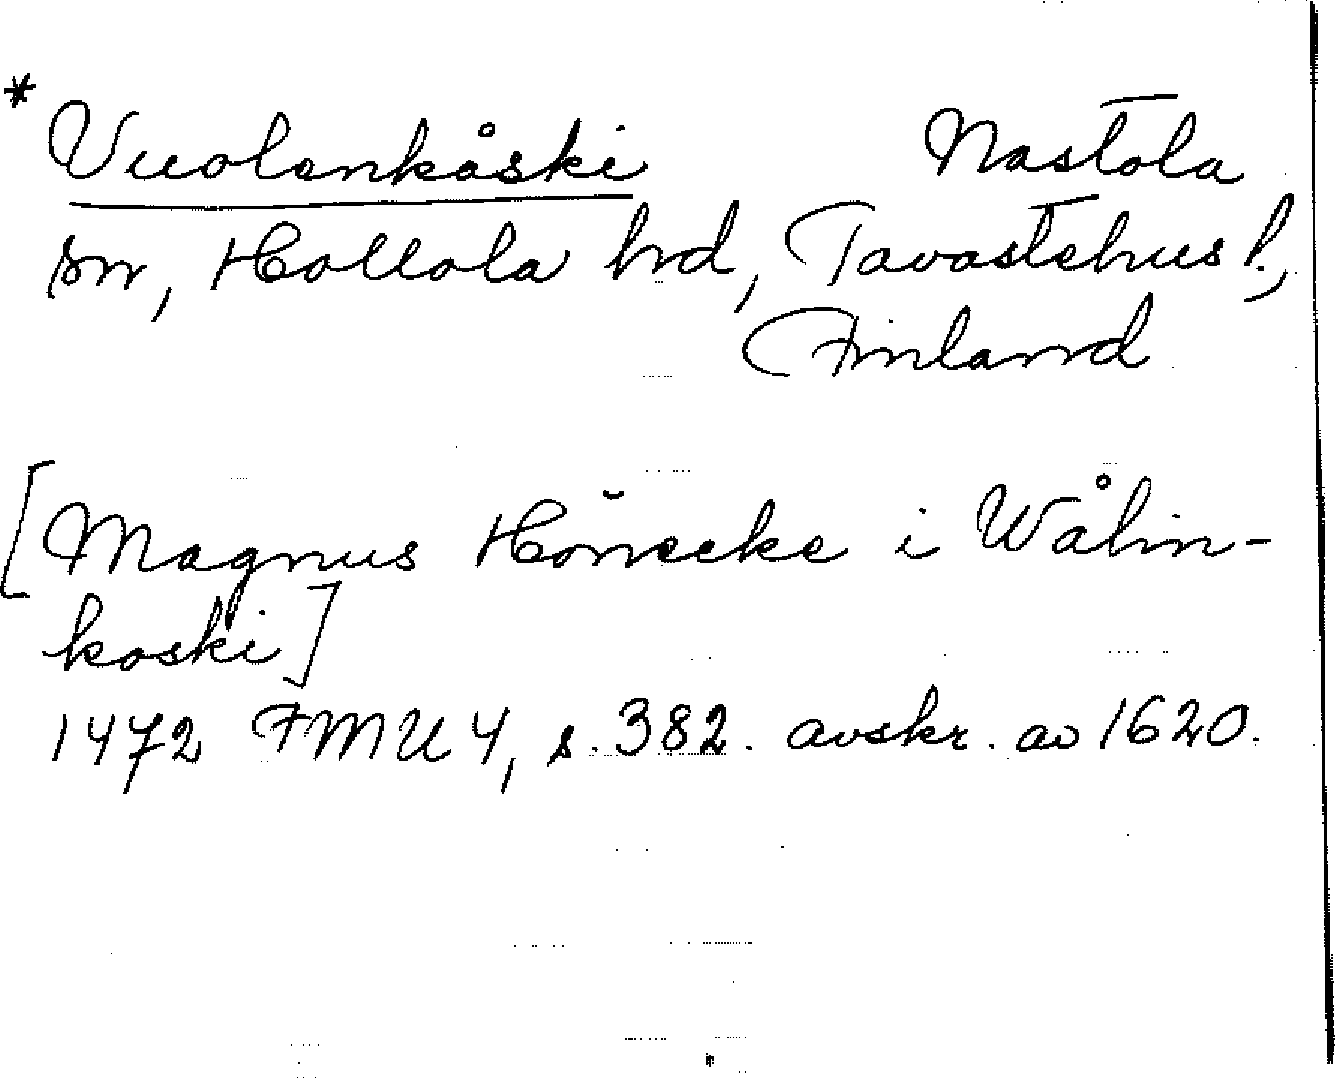 * Vuolenkåski Nastola
sn, Hollola hd, Tavastehus l.,
Finland
[Magnus Hönecke i Wålin-
koski]
1472 FMU 4, s. 382. avskr. av 1620.